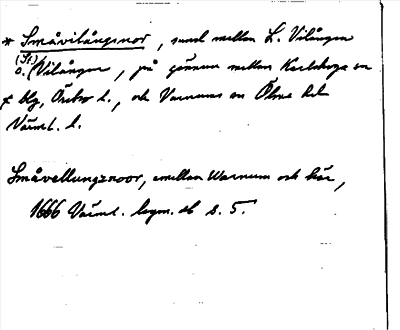 * Småvilångsnor, sund mellan L. Vilången
(St.)
o. Vilången, på gränsen mellan Karlskoga sn
, Örebro l., och Varnums sn Ölme hd
Värml. l.
Småvellungznoor, emellan Warnum och här,
1666 Värml. legm. db s. 5.